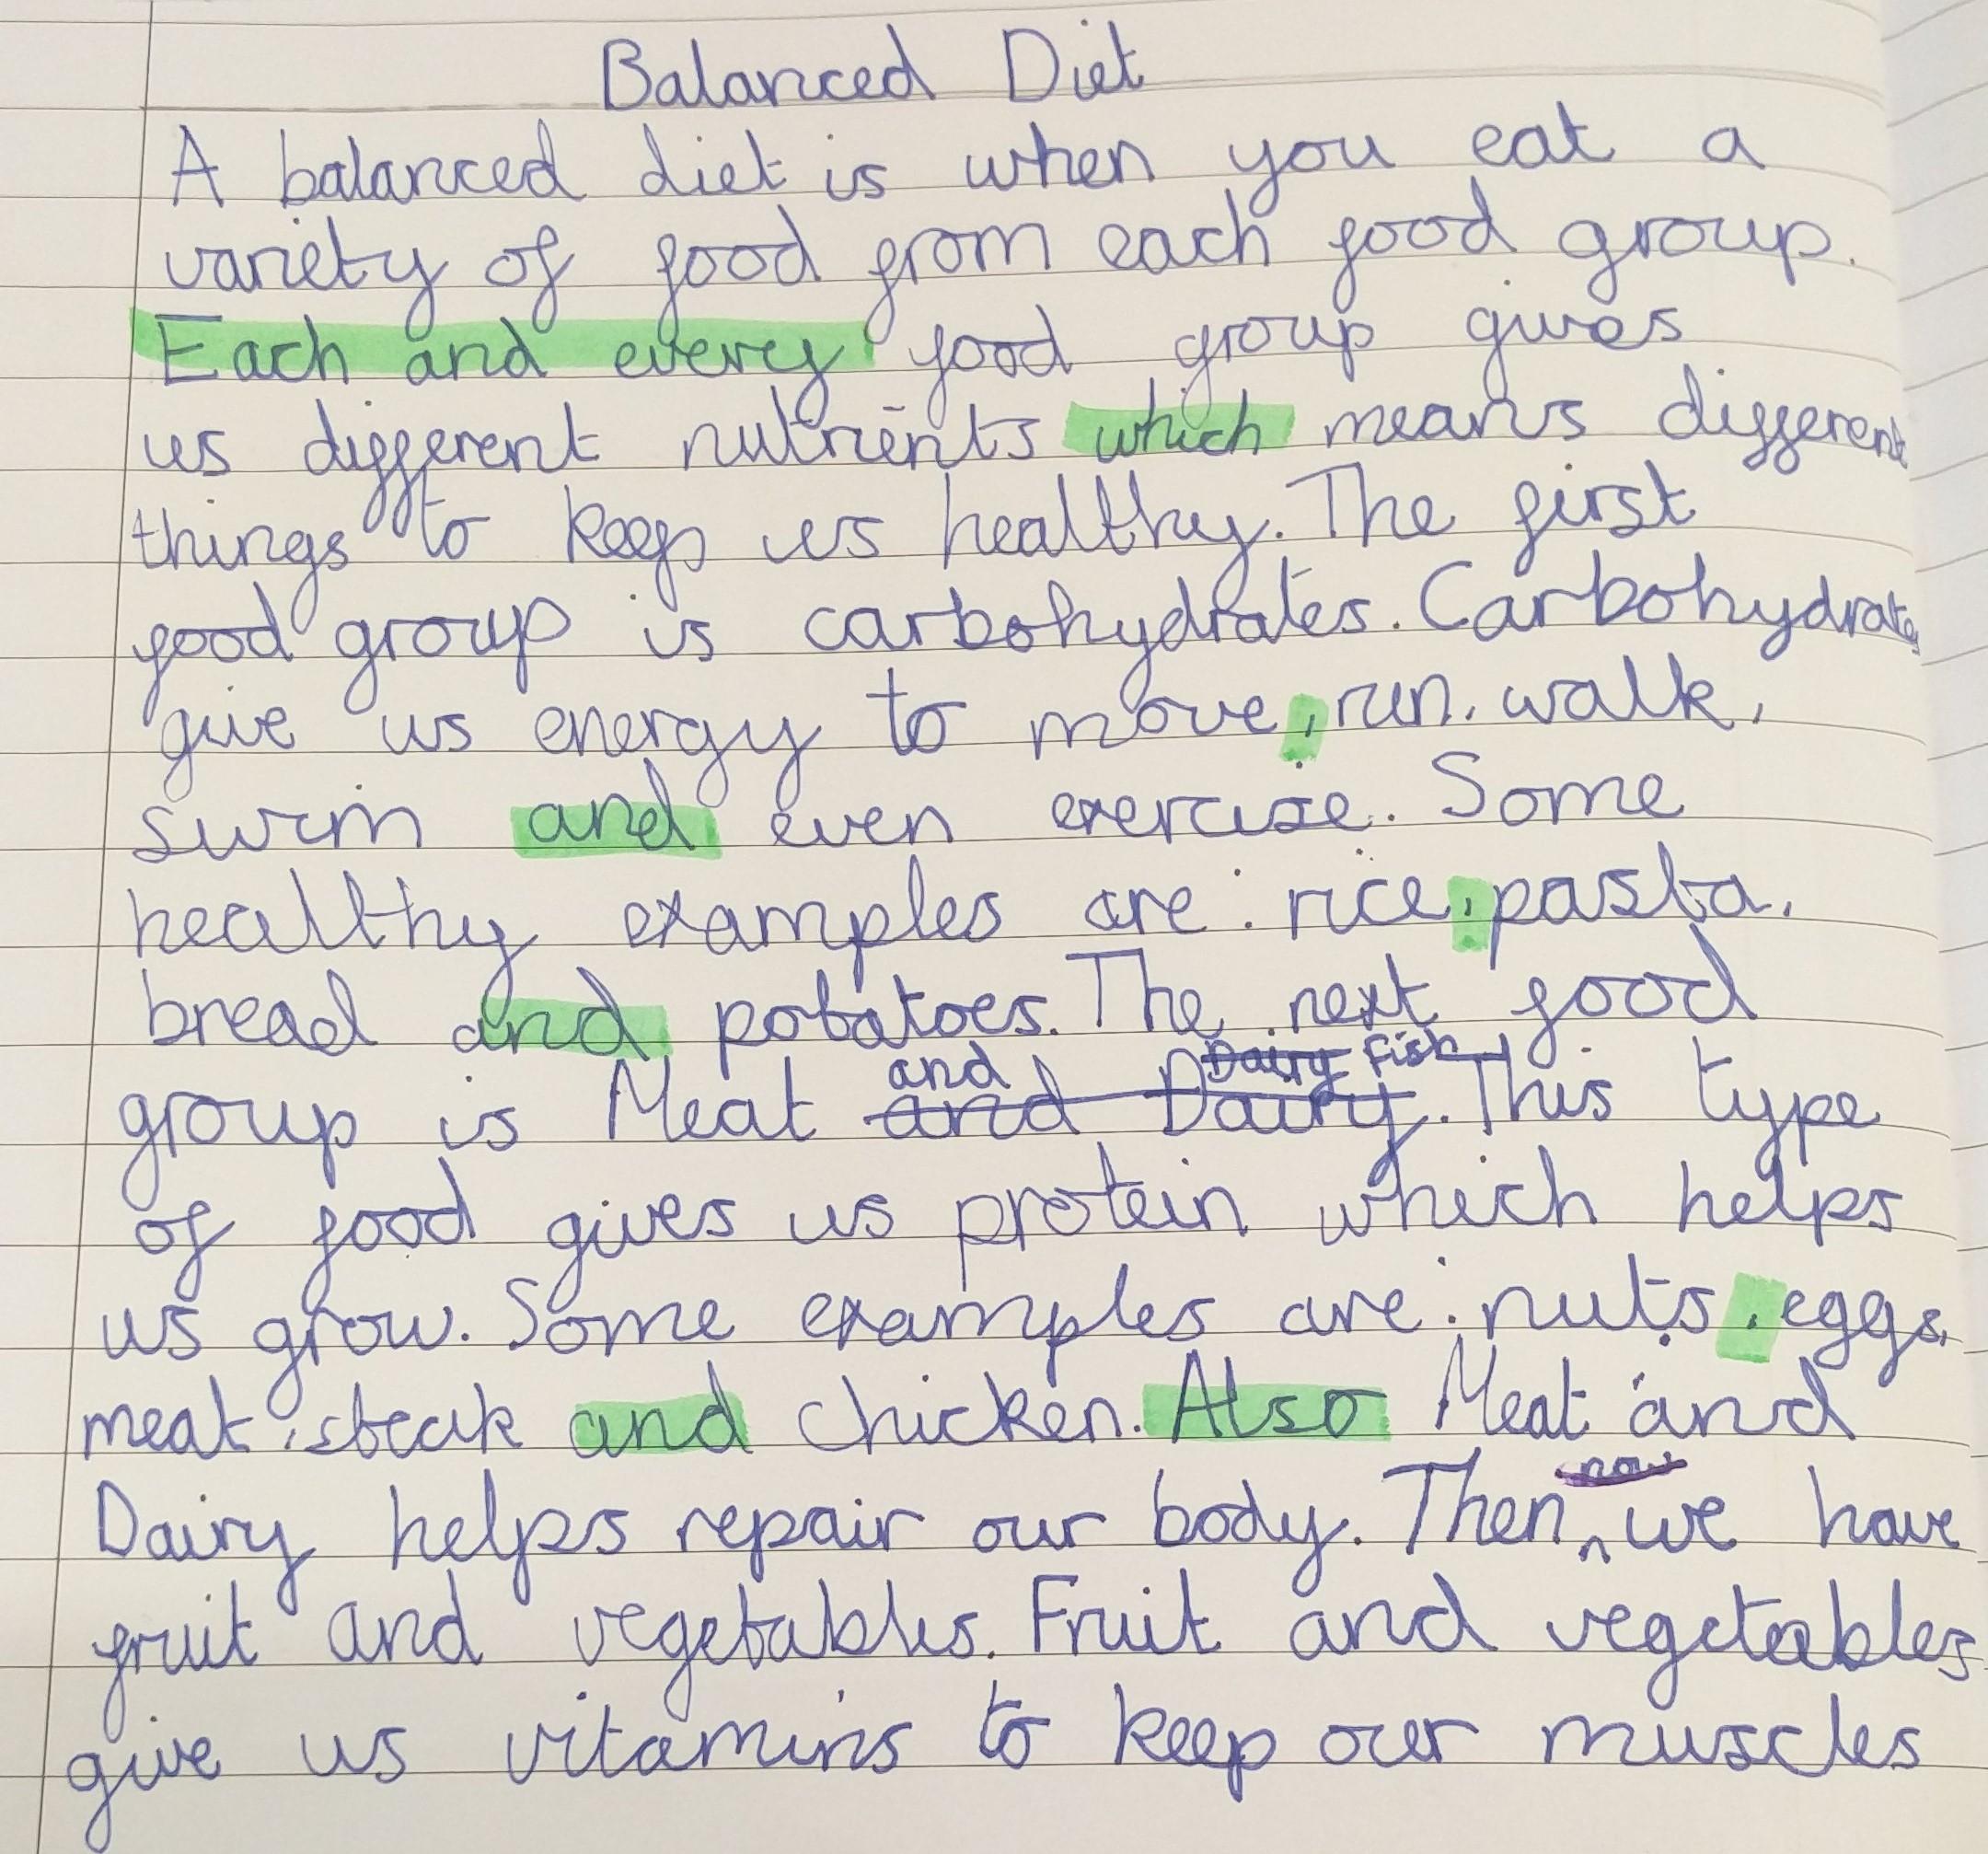 Balanced Diet
A balanced diet is when you eat a
variety of food from each food group.
Each and every food group gives
us different nutrients which means different
things to keep us healthy. The first
food group is carbohydrates. Carbohydrates
give us energy to move, run, walk,
swim and even exercise. Some
healthy examples are: rice, pasta,
bread and potatoes. The next food
and Dairy Fish
group is Meat and Dairy. This type
of food gives us protein which helps
us grow. Some examples are: nuts, eggs,
meat, steak and chicken. Also Meat and
now
Dairy helps repair our body. Then, we have
fruit and vegetables. Fruit and vegetables
give us vitamins to keep our muscles